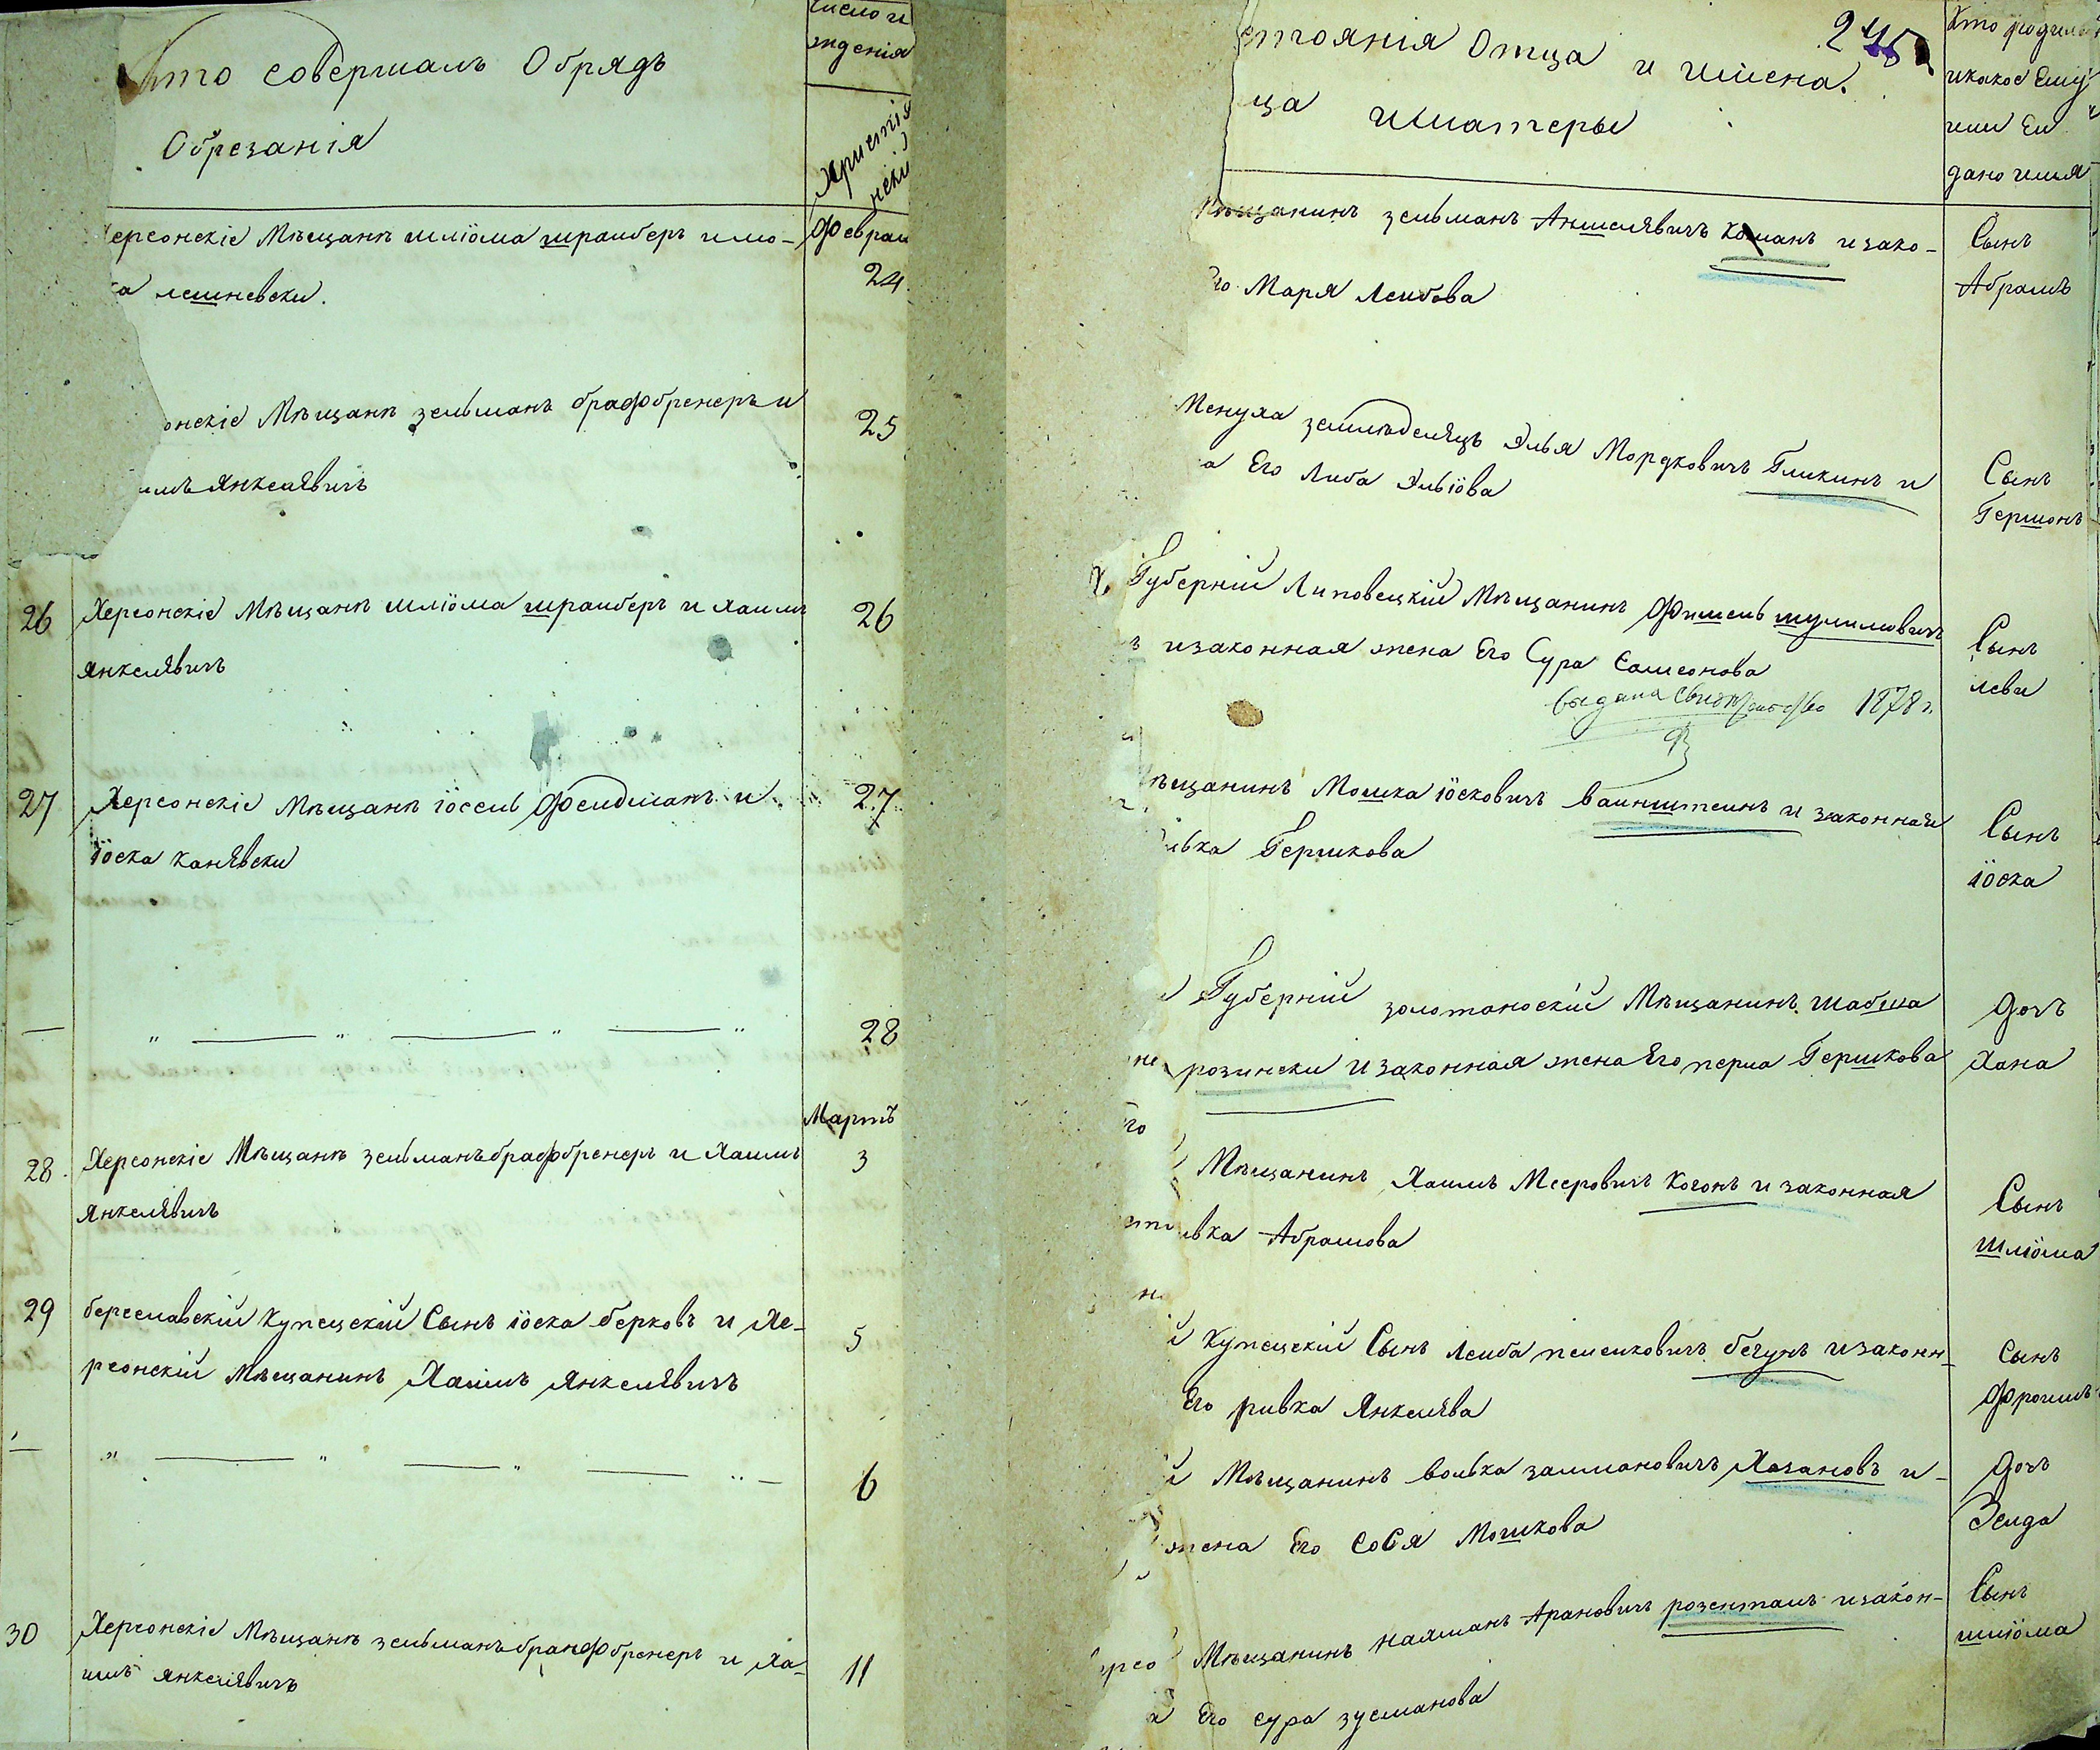 Кто совершалъ Обрядъ
Обрезанія
число и
жденія
Христіа
нскій
ерсонскіе Мѣщанѣ шліома шраиберъ и мо-
ка лешневски.
Феврал
24
онскіе Мѣщанѣ зельманъ брафбренеръ и
имъ янкелявичъ
25
26 Херсонскіе Мѣщанѣ шліома шраиберъ и хаимъ
янкелявичъ
26
27 Херсонскіе Мѣщанѣ іосель Фельдманъ и
іоска канявски
27
— " — " — " — "
28
Мартъ
28. Херсонскіе Мѣщанѣ зельманъ брафбренеръ и Хаимъ
янкелявичъ
3
29 береславскій купецскій Сынъ іоска берковъ и Хе-
рсонскій Мѣщанинъ Хаимъ янкелявичъ
5
— " — " — " — " —
6
30 Херсонскіе Мѣщанѣ зельманъ бранфбренеръ и Ха-
имъ янкелявичъ
11
стоянія Отца и имена.
ца и матеры
245
Кто родился
и какое Ему
или Ей
дано имя
Мѣщанинъ зельманъ Аншелявичъ Коганъ и зако-
го Маря Леибова
Сынъ
Абрамъ
Менуха землѣделяцъ Элья Мордковичъ Гликинъ и
а Его Либа Эльіова
Сынъ
Гершонъ
Губерній Липовецкій Мѣщанинъ Фишель шулимовичъ
ъ и законная жена Его Сура Самсонова
выдана свидѣтельство 1878 г.
Сынъ
леви
ѣщанинъ Мошка іосковичъ ваинштеинъ и законная
ивка Гершкова
Сынъ
іоска
Губерній золотаноскій Мѣщанинъ шабша
розински и законная жена Его перла Гершкова
Дочъ
Хана
Мѣщанинъ Хаимъ Мееровичъ Когонъ и законная
ивка Абрамова
Сынъ
шліома
й купецскій Сынъ Леиба пейсиховичъ бегунъ и законн-
Его ривка Янкелява
Сынъ
Фроимъ
й Мѣщанинъ волька залмановичъ Хазановъ и-
жена Его Сося Мошкова
Дочъ
Зелда
ерсо Мѣщанинъ нахманъ Арановичъ розенталь и закон-
а Его сура зусманова
Сынъ
шліома